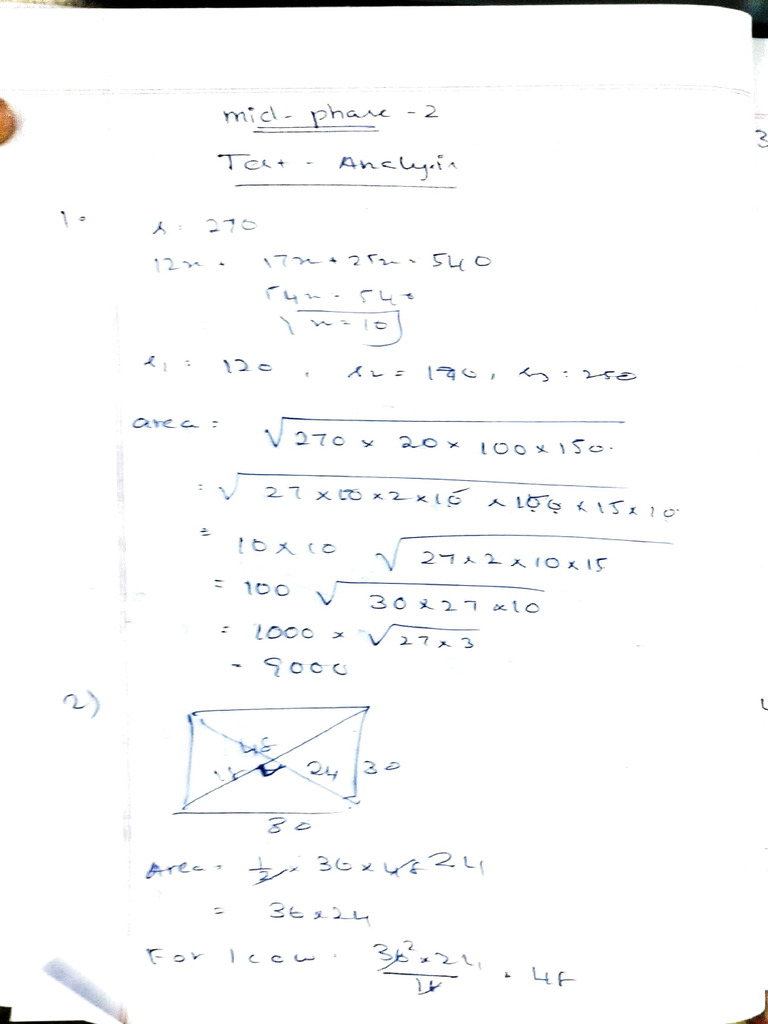 mid-phase-2
Test - Analysis
1. s = 270
12x + 17x + 25x = 540
54x = 540
x = 10
s1 = 120, s2 = 170, s3 = 250
area = √270 × 20 × 100 × 150
= √27 × 10 × 2 × 10 × 100 × 15 × 10
= 10 × 10 √27 × 2 × 10 × 15
= 100 √30 × 27 × 10
= 1000 × √27 × 3
= 9000
2)
48
18 24 30
30
Area = 1/2 × 36 × 48 24
= 36 × 24
For 1 cow = 36² × 24 / 18 = 48